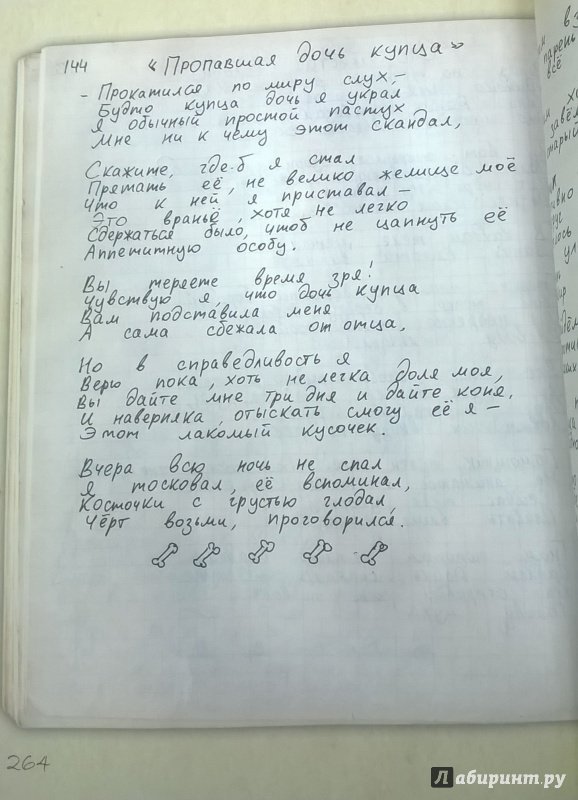 144 « Пропавшая дочь купца»
- Прокатился по миру слух,-
Будто купца дочь я украл
Я обычный простой пастух
Мне ни к чему этот скандал,
Скажите, где-б я стал
Прятать её, не велико желище моё
Что к ней я приставал -
Это враньё, хотя не легко
Сдержаться было, чтоб не цапнуть её
Аппетитную особу.
Вы теряете время зря!
Чувствую я, что дочь купца
Вам подставила меня
А сама сбежала от отца,
Но в справедливость я
Верю пока, хоть не легка доля моя,
Вы дайте мне три дня и дайте коня,
И наверняка, отыскать смогу её я -
Этот лакомый кусочек.
Вчера всю ночь не спал
Я тосковал, её вспоминал,
Косточки с грустью глодал,
Чёрт возьми, проговорился.
264
Лабиринт.ру